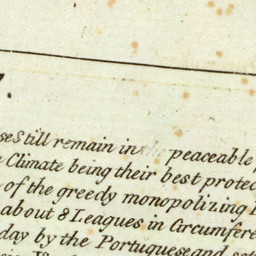 se still remain in the peaceable
Climate being their best protec
of the greedy monopolizing
about 8 Leagues in Circumfere
day by the Portuguese and